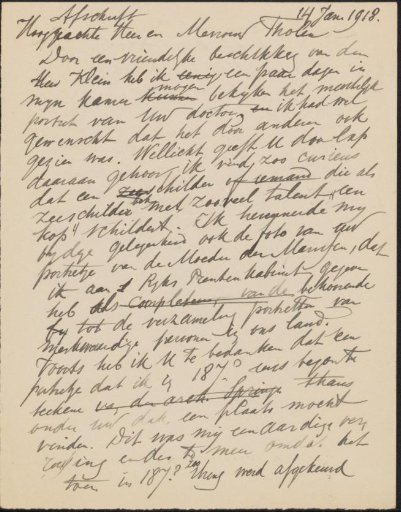 Afschrift
14 Jan. 1918.
Hooggeachte Heer en Mevrouw Tholen
Door een vriendelijke beschikking van den
Heer Klein heb ik een paar dagen in
mijn kamer mogen bekijken het meesterlijk
portret van Uw doctor en ik had wel
gewenscht dat het door anderen ook
gezien was. Wellicht geeft U door Cap
daaraan gehoor, ik vind zoo curieus
dat een schilder of iemand die als
zeeschilder met zooveel talent, een
kop schildert. Ik herinnerde mij
bij die gelegenheid ook de foto van uw
portretje van de Moeder der Marissen, dat
ik aan 's Ryks Prentenkabinet gegeven
heb als completeren, van de behoorende
bij tot de verzameling portretten van
merkwaardige personen in ons land.
Voorts heb ik U te bedanken dat een
portretje dat ik in 187? eens begon te
teekenen van den arch. Springer thans
onder uw dak een plaats mocht
vinden. Dit was mij een aardige ver
rassing en des te meer omdat het
toen in 187? werd afgekeurd